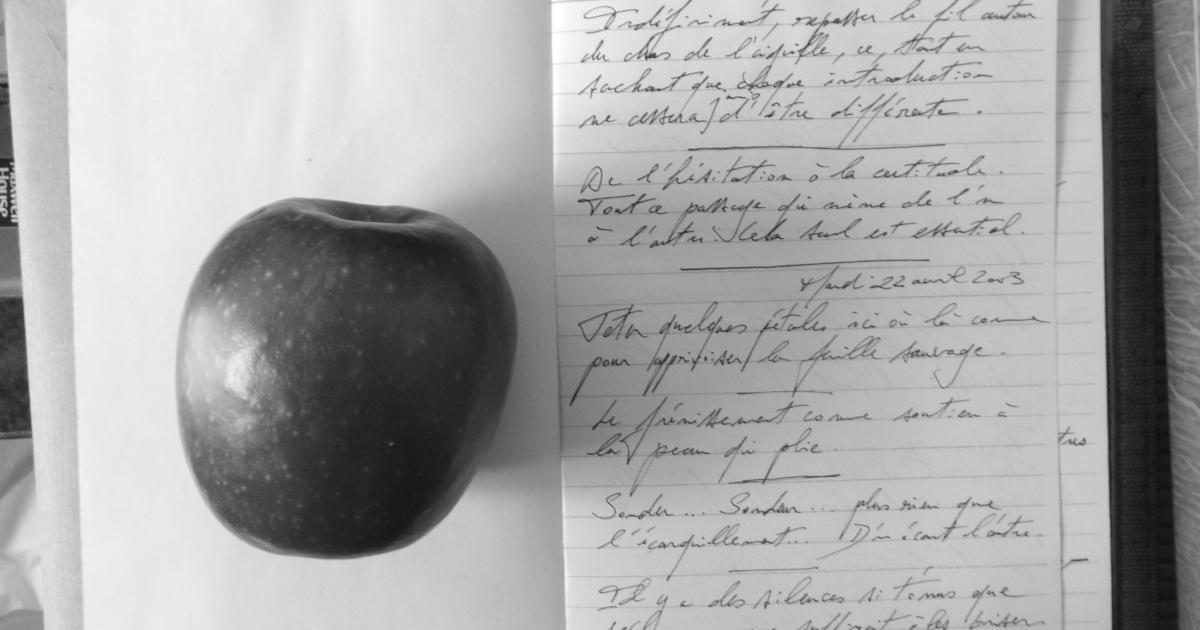 Indéfiniment, repasser le fil autour
du chas de l'aiguille, ce, tout en
sachant que chaque introduction
ne cessera d'être différente.
De l'hésitation à la certitude.
Tout ce passage qui mène de l'un
à l'autre. Cela seul est essentiel.
Mardi 22 avril 2003
Jeter quelques pétales ici où là comme
pour apprivoiser la feuille sauvage.
Le frémissement comme soutien à
la peau qui plie.
Sonder... Sonder... plus rien que
l'écarquillement... D'un écart l'autre.
Il y a des silences si ténus que
suffirait à les briser
tres
House